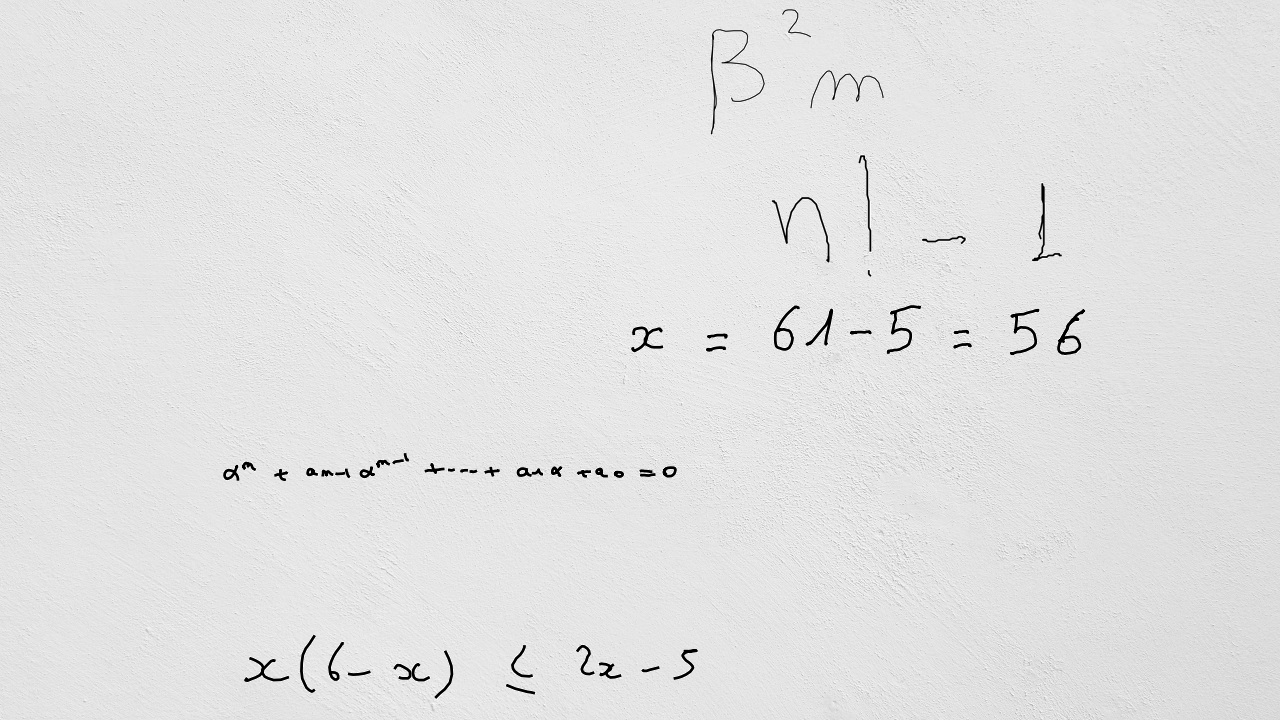 β²m
n! - 1
x = 61 - 5 = 56
αᵐ + aₘ₋₁αᵐ⁻¹ + ---- + a₁α + a₀ = 0
x(6 - x) ≤ 2x - 5